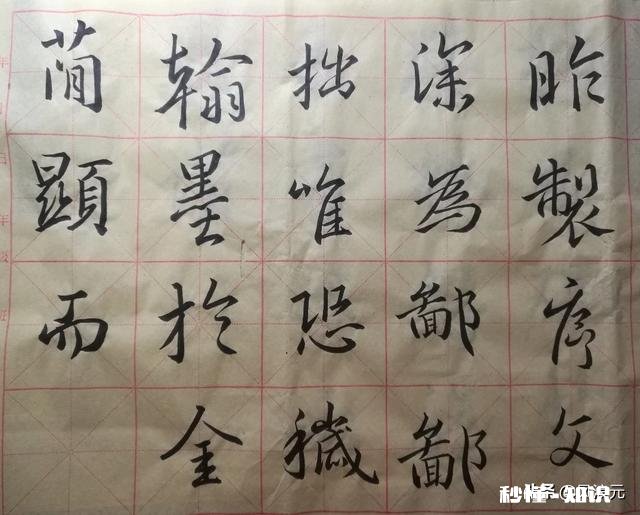 昨製序文
深為鄙鄙
拙唯恐穢
翰墨於金
簡顯而
秒懂·知识